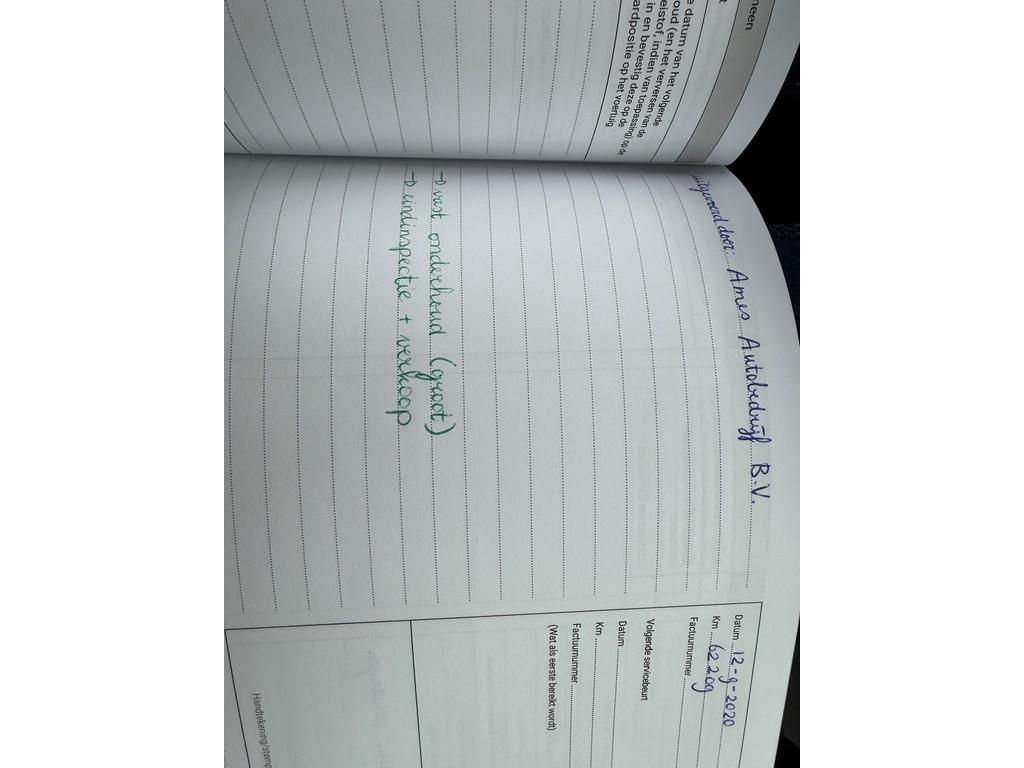 neen
e datum van het volgende
oud (en het verversen van de
eistof, indien van toepassing) op de
in en bevestig deze op de
ardpositie op het voertuig
uitgevoerd door: Ames Autobedrijf B.V.
→ vast onderhoud (groot)
→ eindinspectie + verkoop
Datum 12-9-2020
Km 62209
Factuurnummer
Volgende servicebeurt
Datum
Km
Factuurnummer
(Wat als eerste bereikt wordt)
Handtekening/stemp